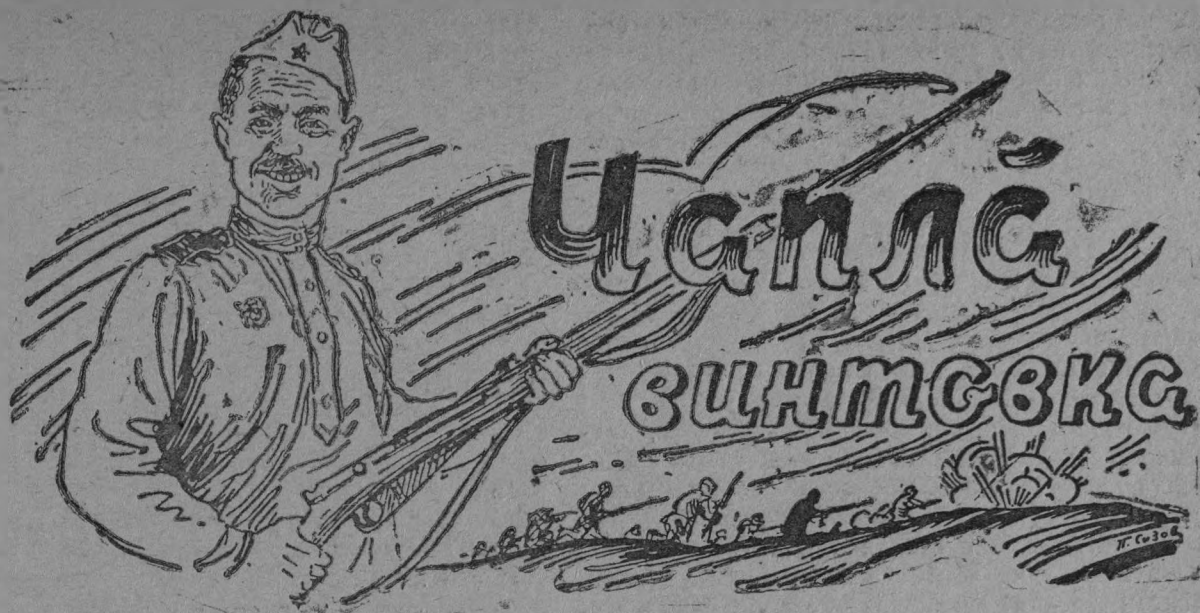 Чаплӑ
винтовка
П. Сизов